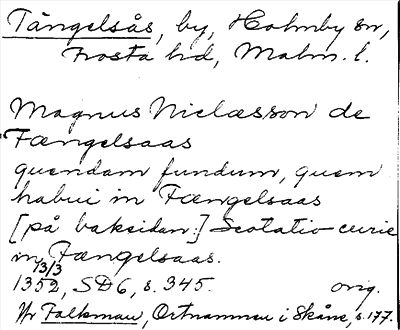 Tängelsås, by, Holmby sn,
Frosta hd, Malm. l.
Magnus Niclæsson de
Fængelsaas
quendam fundum, quem
habui in Fængelsaas
[på baksidan:] Scotatio curie
in Fængelsaas.
13/3
1352, SD 6, s. 345. orig.
Hr Falkman, Ortnamnen i Skåne, s. 177.